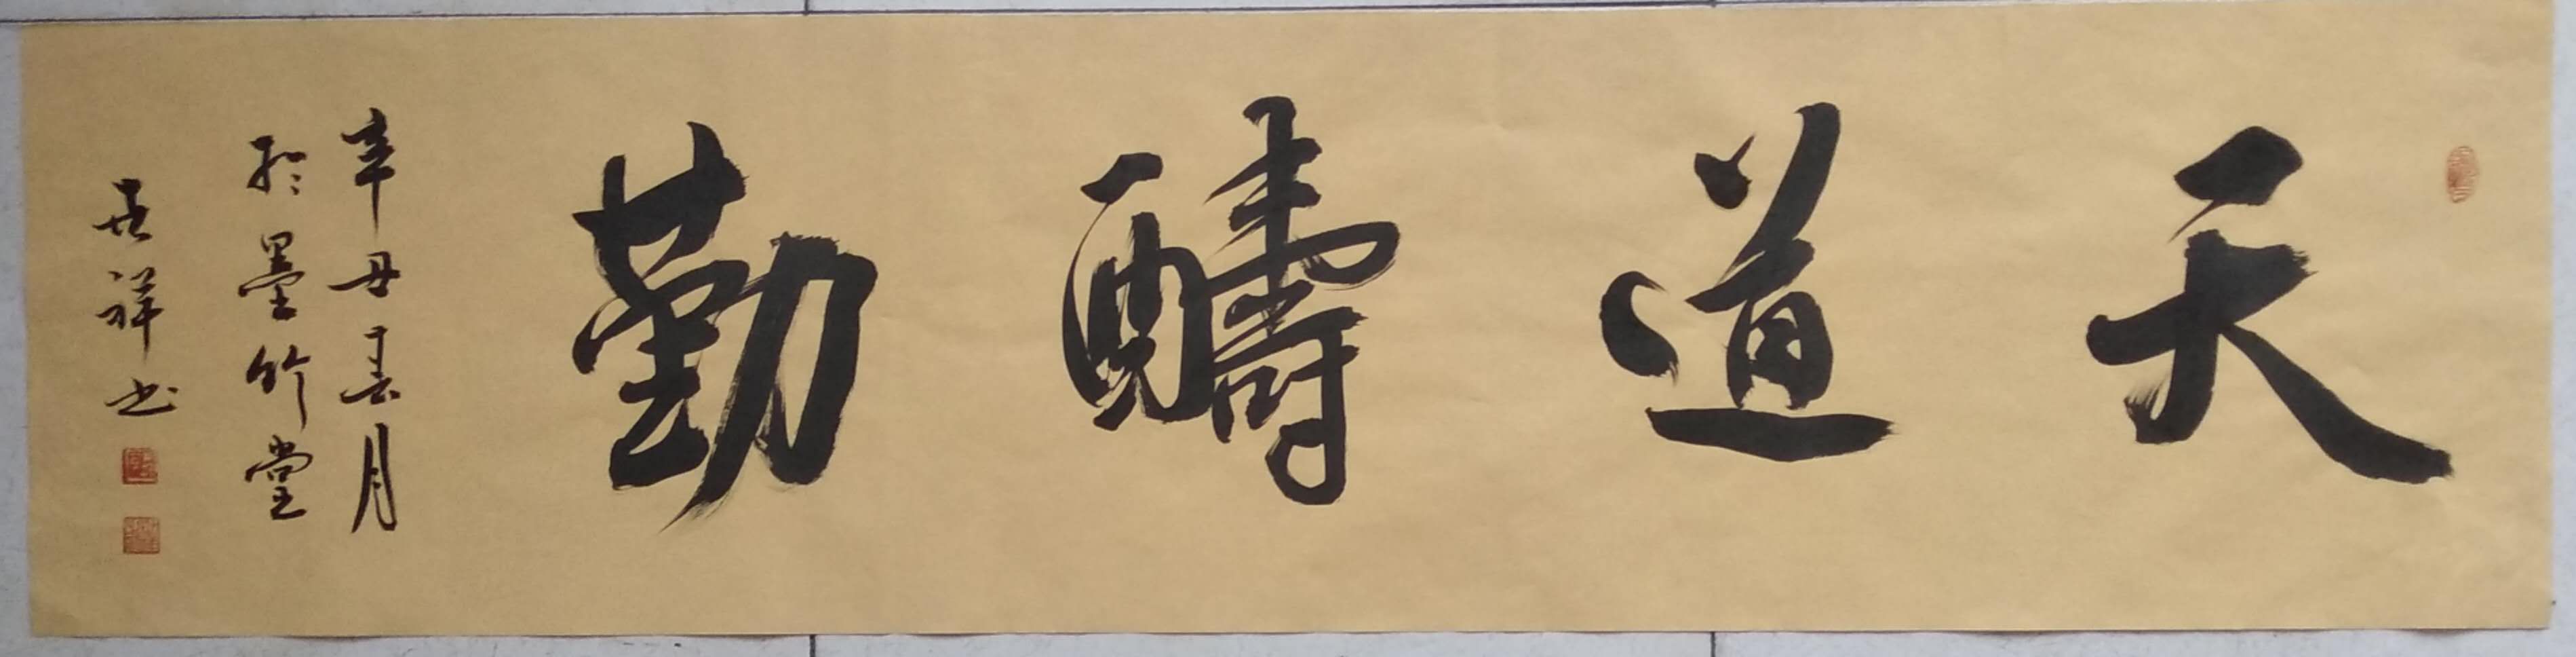 天道酬勤
辛丑春月
於墨竹堂
世祥书